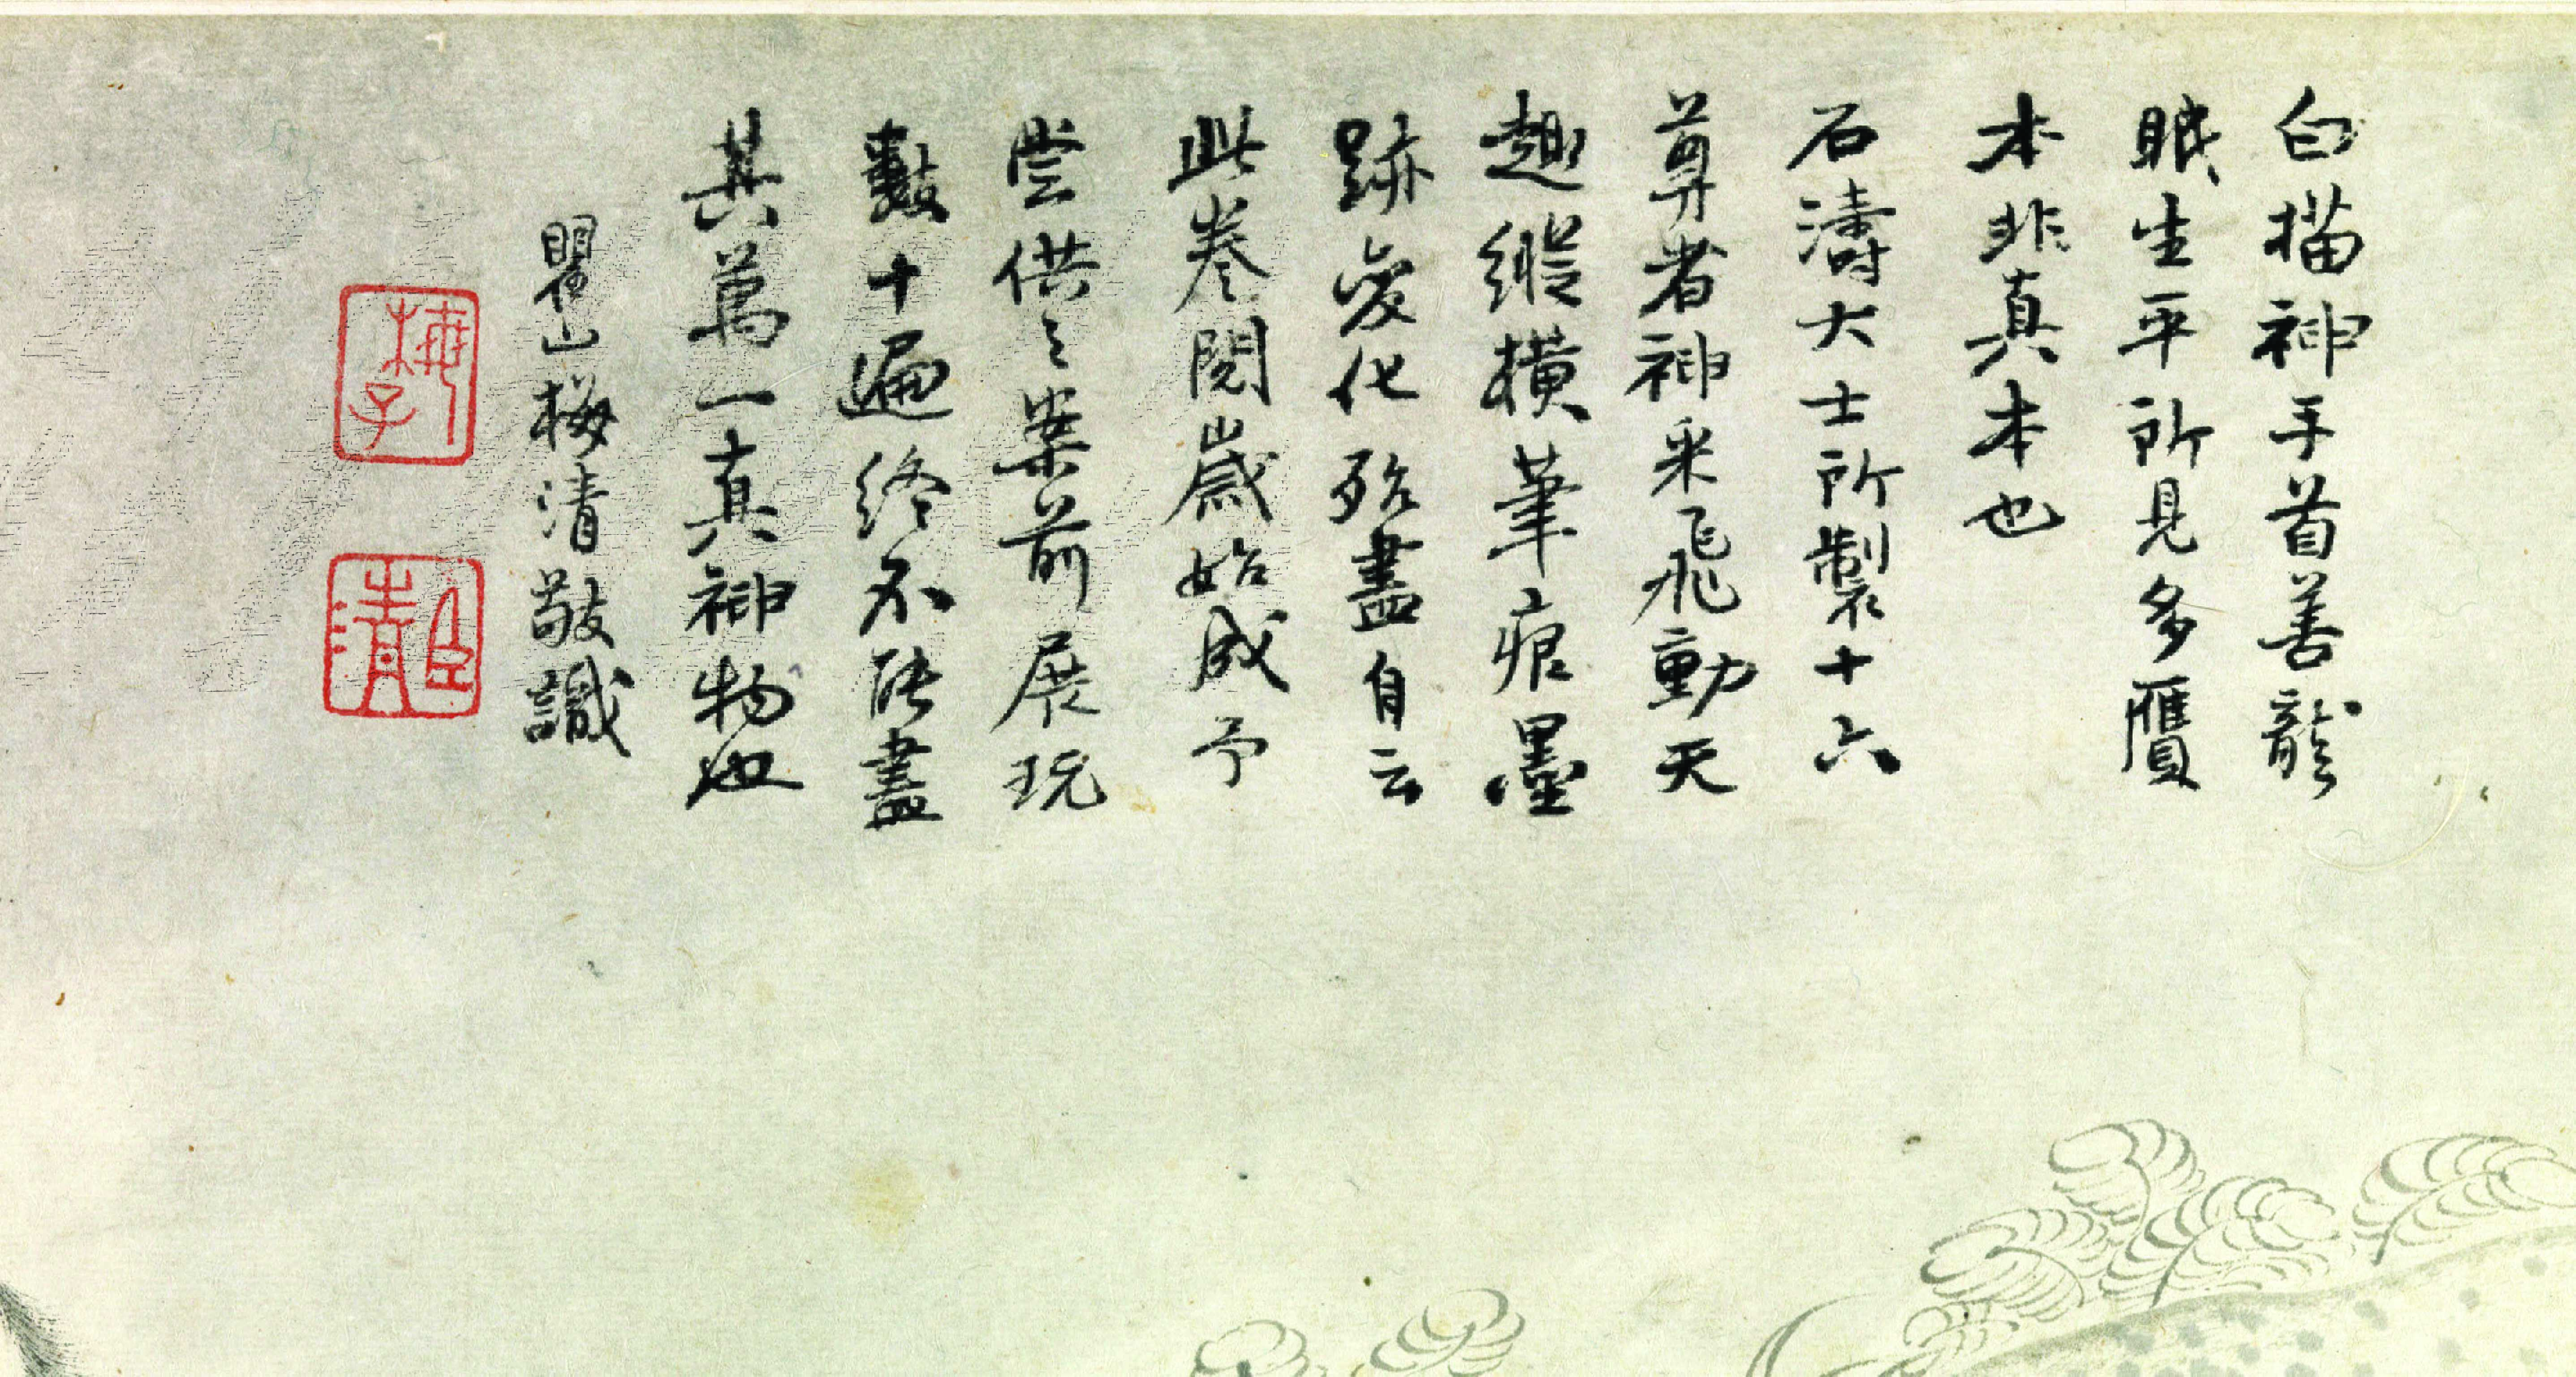 白描神手首善龍
眠生平所見多贋
本非真本也
石濤大士所製十六
尊者神采飛動天
趣縱橫筆痕墨
跡變化殆盡自云
此卷閱歲始成予
嘗供之案前展玩
數十遍終不能盡
其萬一真神物也
瞿山梅清敬識
梅子
臣清